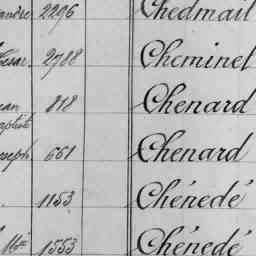 andre 2296 Chedmail
César 2788 Cheminel
ean 818 Chenard
aptiste
oseph 661 Chenard
1153 Chénedé
1553 Chénedé